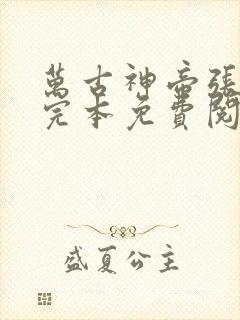 萬古神帝張
完本免費閱
盛夏公主